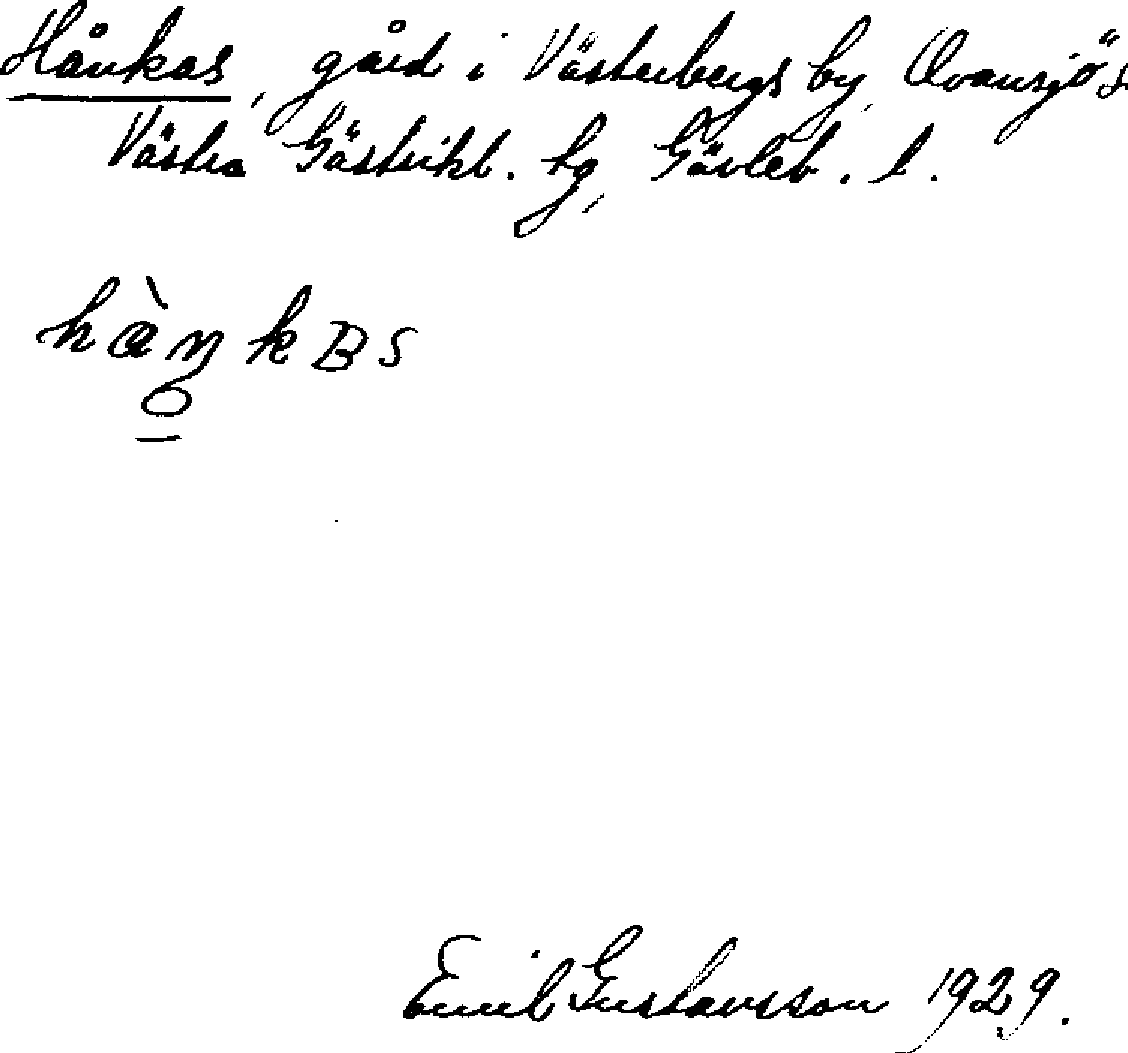 Hånkas, gård i Västerbergs by, Ovansjö s
Västra Gästrikl. tg, Gävleb. l.
hàŋkʙs
Emil Gustavsson 1929.